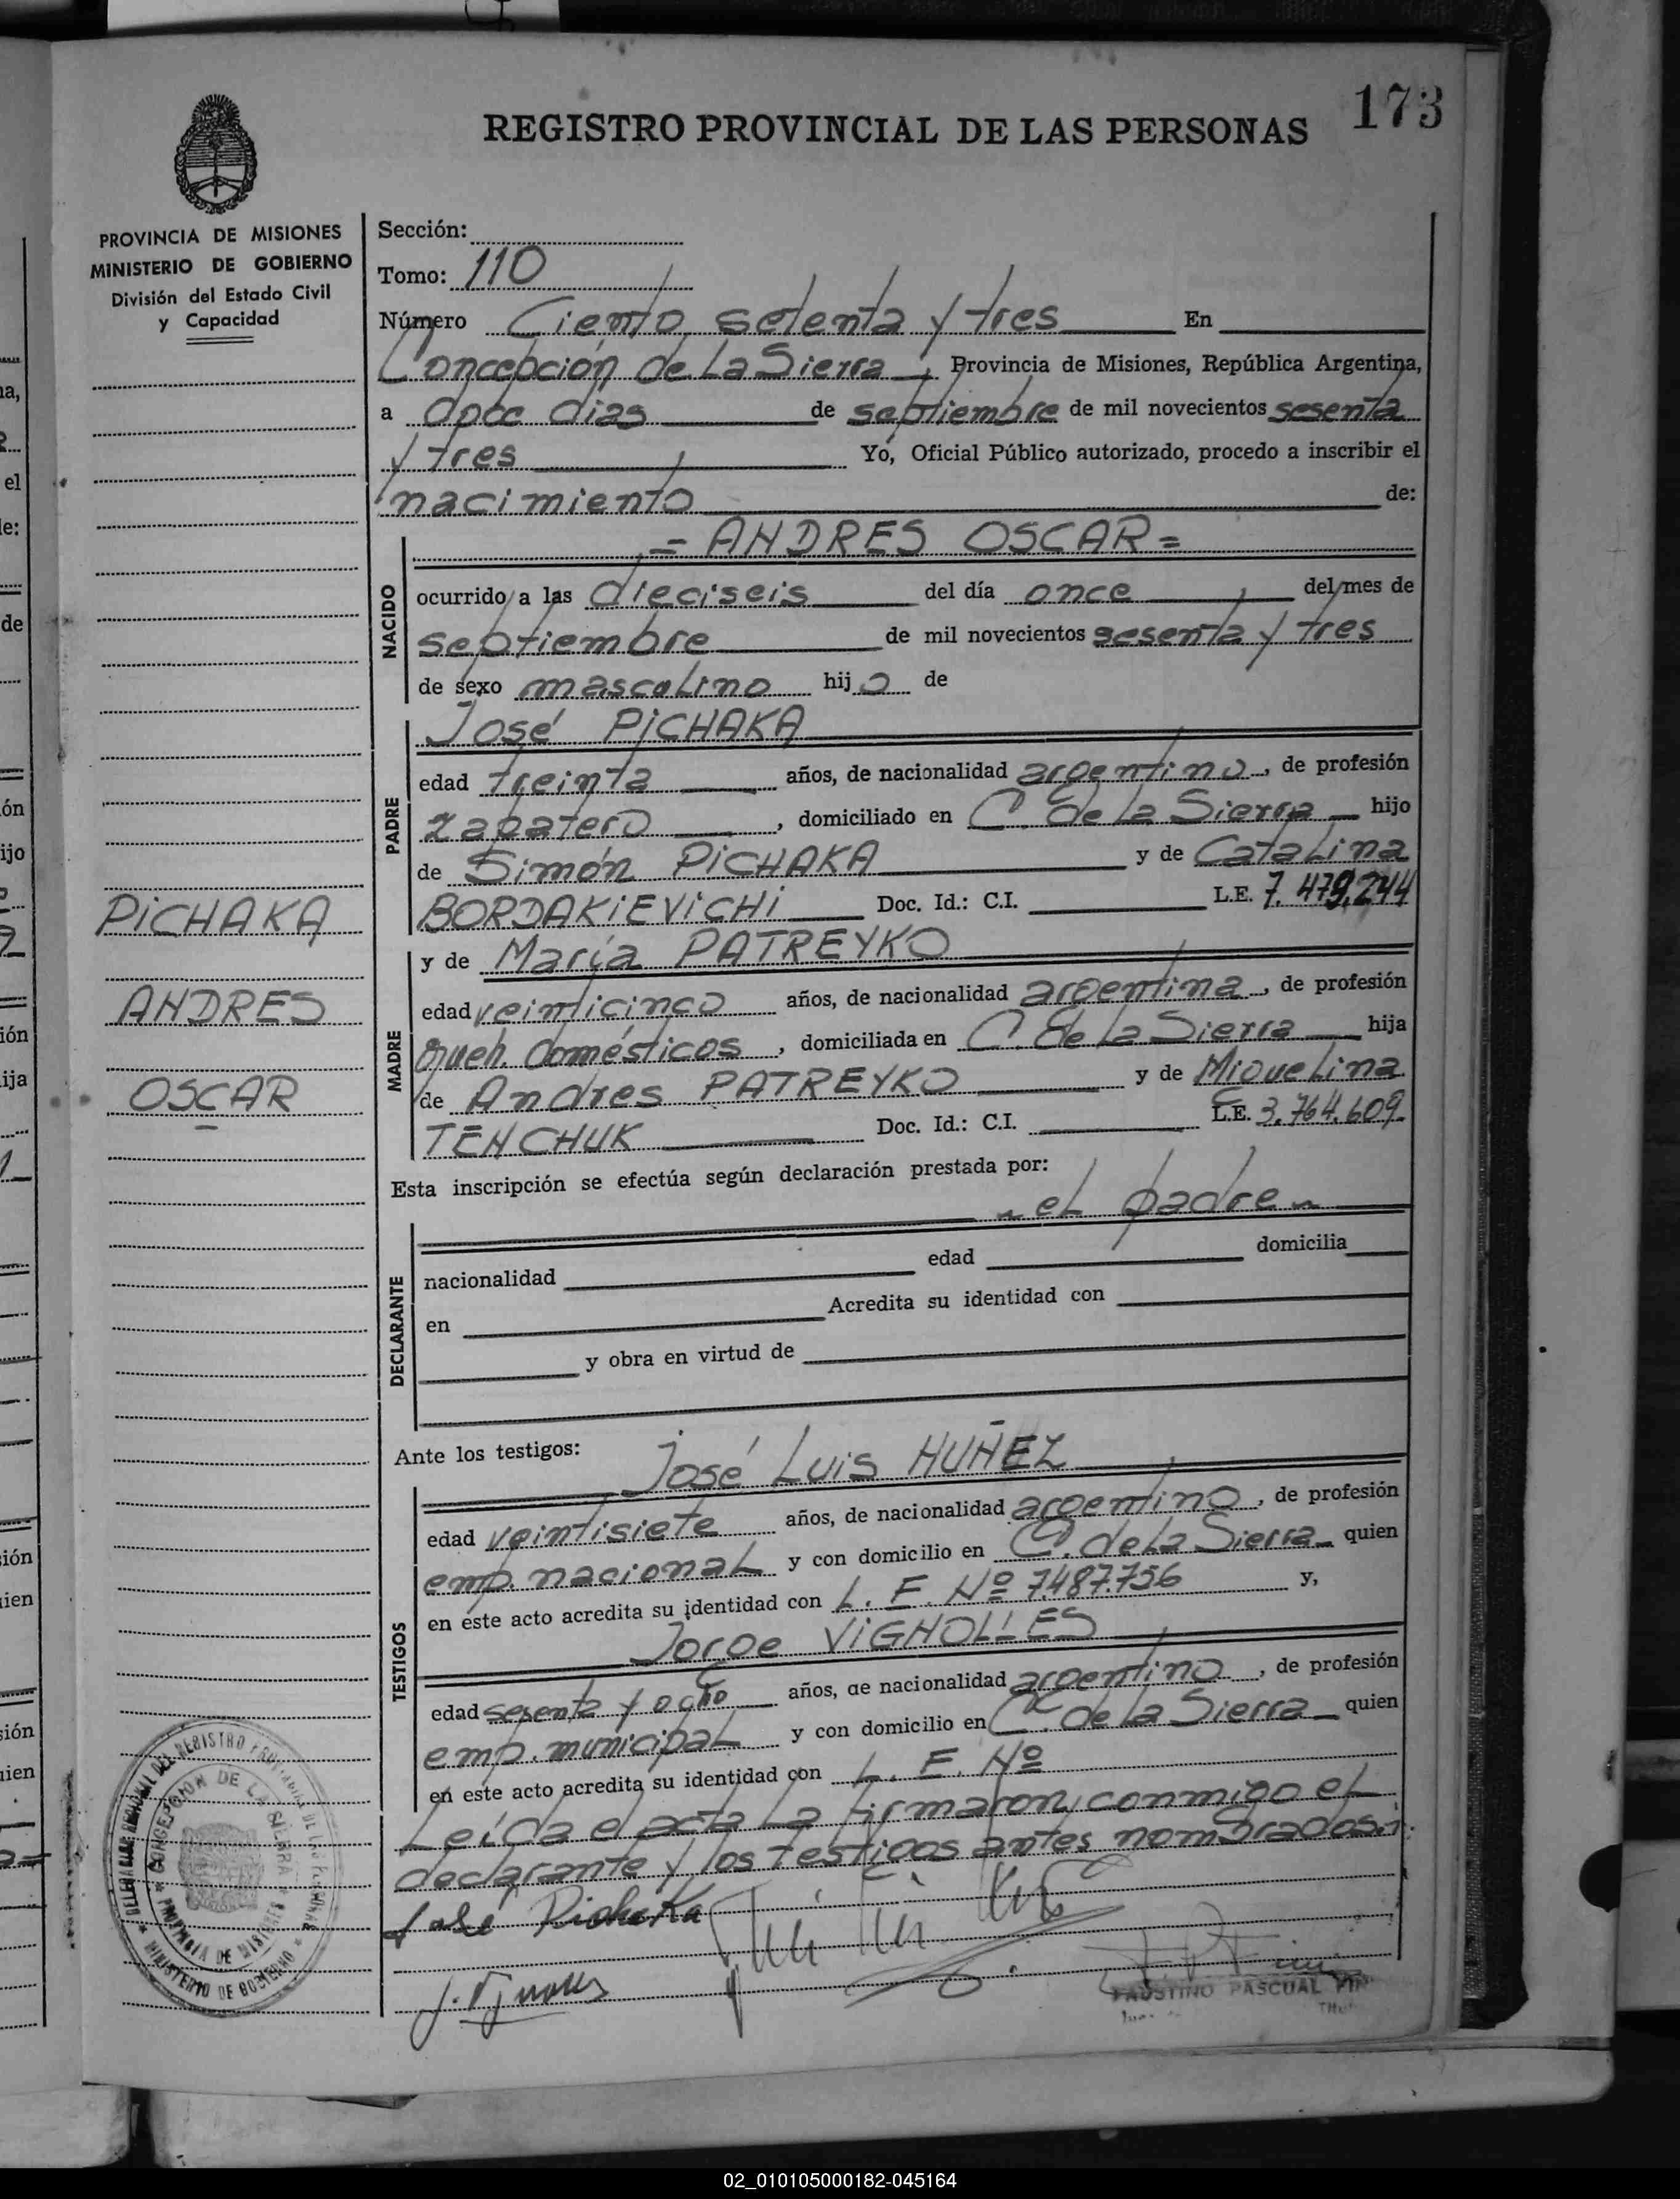 173
REGISTRO PROVINCIAL DE LAS PERSONAS
PROVINCIA DE MISIONES
MINISTERIO DE GOBIERNO
División del Estado Civil
y Capacidad
PICHAKA
ANDRES
OSCAR
Sección:
Tomo: 110
Número Ciento setenta y tres En
Concepción de La Sierra, Provincia de Misiones, República Argentina,
a doce dias de septiembre de mil novecientos sesenta
y tres Yó, Oficial Público autorizado, procedo a inscribir el
nacimiento de:
= ANDRES OSCAR =
NACIDO
ocurrido a las dieciseis del día once del mes de
septiembre de mil novecientos sesenta y tres
de sexo mascaLino hijo de
José PICHAKA
PADRE
edad treinta años, de nacionalidad argentino, de profesión
zapatero, domiciliado en C. de La Sierra hijo
de Simón PICHAKA y de CataLina
BORDAKIEVICHI Doc. Id.: C.I. L.E. 7.479.244
y de María PATREYKO
MADRE
edad veinticinco años, de nacionalidad argentina, de profesión
queh. domésticos, domiciliada en C. de La Sierra hija
de Andres PATREYKO y de MigueLina
TENCHUK Doc. Id.: C.I. L.E. 3.764.609.
Esta inscripción se efectúa según declaración prestada por:
eL padre
DECLARANTE
nacionalidad edad domicilia
en Acredita su identidad con
y obra en virtud de
Ante los testigos: José Luis NUÑEZ
TESTIGOS
edad veintisiete años, de nacionalidad argentino, de profesión
emp. nacionaL y con domicilio en C. de La Sierra quien
en este acto acredita su identidad con L. E. Nº 7.487.756 y,
Jorge VIGNOLLES
edad sesenta y ocho años, de nacionalidad argentino, de profesión
emp. municipaL y con domicilio en C. de La Sierra quien
en este acto acredita su identidad con L. E. Nº
Leída el acta La firmaron conmigo eL
declarante y los testigos antes nombrados.
José Pichaka
FAUSTINO PASCUAL
DELEGACION REGIONAL DEL REGISTRO PROVINCIAL DE LAS PERSONAS
CONCEPCION DE LA SIERRA
PROVINCIA DE MISIONES
MINISTERIO DE GOBIERNO
02_010105000182-045164